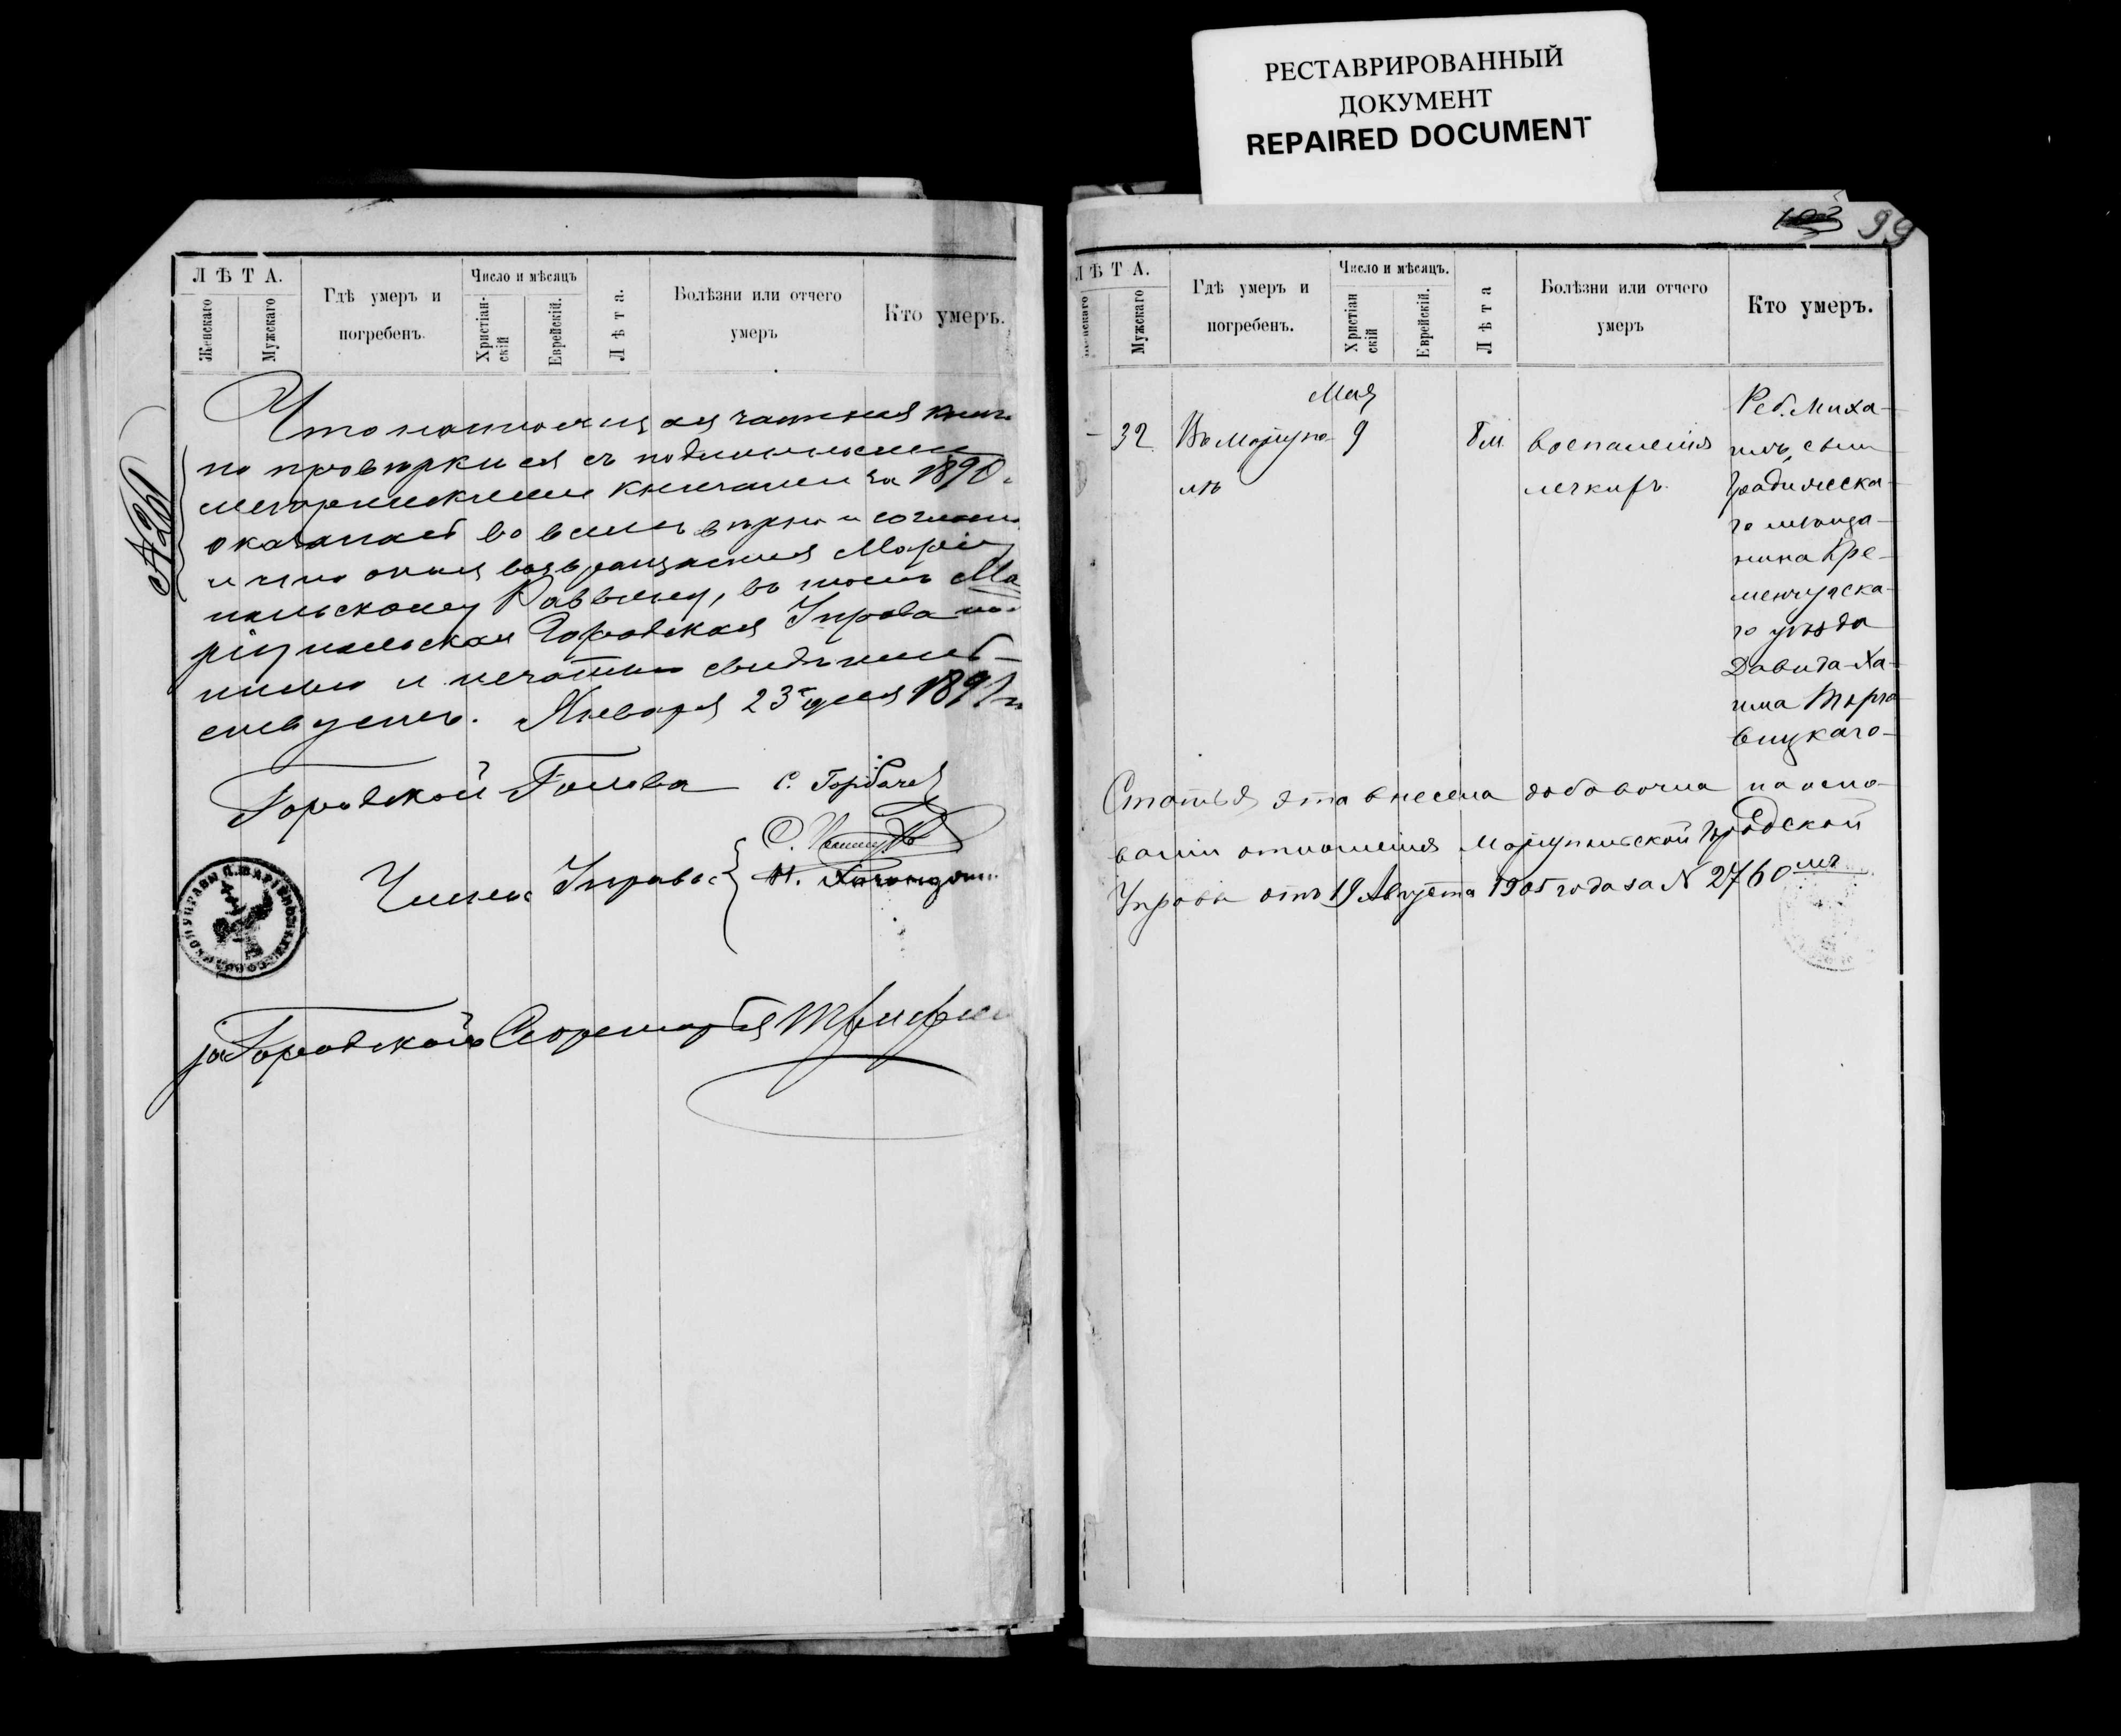 РЕСТАВРИРОВАННЫЙ
ДОКУМЕНТ
REPAIRED DOCUMENT
ЛѢТА.
Женскаго
Мужскаго
Гдѣ умеръ и
погребенъ.
Число и мѣсяцъ
Христіан-
скій
Еврейскій.
Лѣта.
Болѣзни или отчего
умеръ
Кто умеръ.
Что настоящая частная книга
по провѣркѣ ея съ подлинными
метрическими книгами за 1890
оказалась во всемъ вѣрна и согласна
и что оная возвращается Маріу
польскому Раввину, въ томъ Ма
ріупольская Городская Управа под
писью и печатью свидѣтель-
ствуетъ. Января 23 дня 1891 г
Городской Голова С. Горбаче
Члены Управы
за Городского Секретаря
99
ЛѢТА.
Женскаго
Мужскаго
Гдѣ умеръ и
погребенъ.
Число и мѣсяцъ.
Христіан
скій
Еврейскій.
Лѣта
Болѣзни или отчего
умеръ
Кто умеръ.
Мая
– 32 Въ Маріупо- 9 8 м воспаленія
лѣ легкихъ.
Реб. Миха-
илъ, сынъ
Градижска-
го мѣща-
нина Кре-
менчугска-
го уѣзда
Давида-Ха-
има Тарно
вицкаго-
Статья эта внесена добавочна на осно-
ваніи отношенія Маріупольской Городской
Управы отъ 19 Августа 1905 года за N 2760